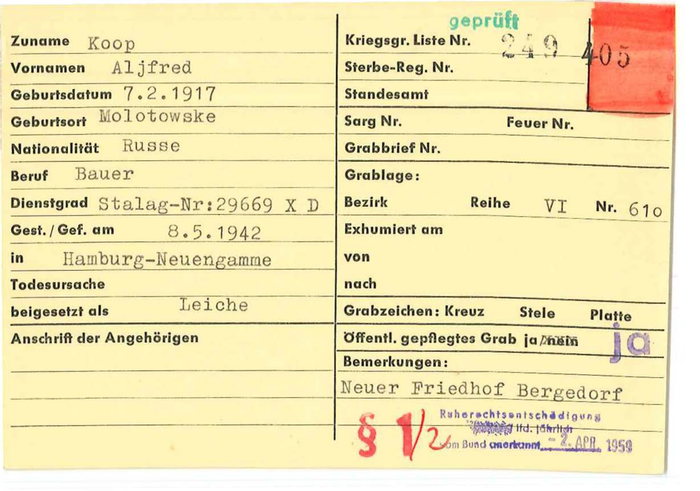 geprüft
Zuname Koop
Vornamen Aljfred
Geburtsdatum 7.2.1917
Geburtsort Molotowske
Nationalität Russe
Beruf Bauer
Dienstgrad Stalag-Nr:29669 X D
Gest./Gef. am 8.5.1942
in Hamburg-Neuengamme
Todesursache
beigesetzt als Leiche
Anschrift der Angehörigen
Kriegsgr. Liste Nr. 249 405
Sterbe-Reg. Nr.
Standesamt
Sarg Nr. Feuer Nr.
Grabbrief Nr.
Grablage:
Bezirk Reihe VI Nr. 610
Exhumiert am
von
nach
Grabzeichen: Kreuz Stele Platte
Öffentl. gepflegtes Grab ja/nein ja
Bemerkungen:
Neuer Friedhof Bergedorf
§ 1/2
Ruherechtsentschädigung
lfd. jährlich
vom Bund anerkannt - 2. APR. 1959